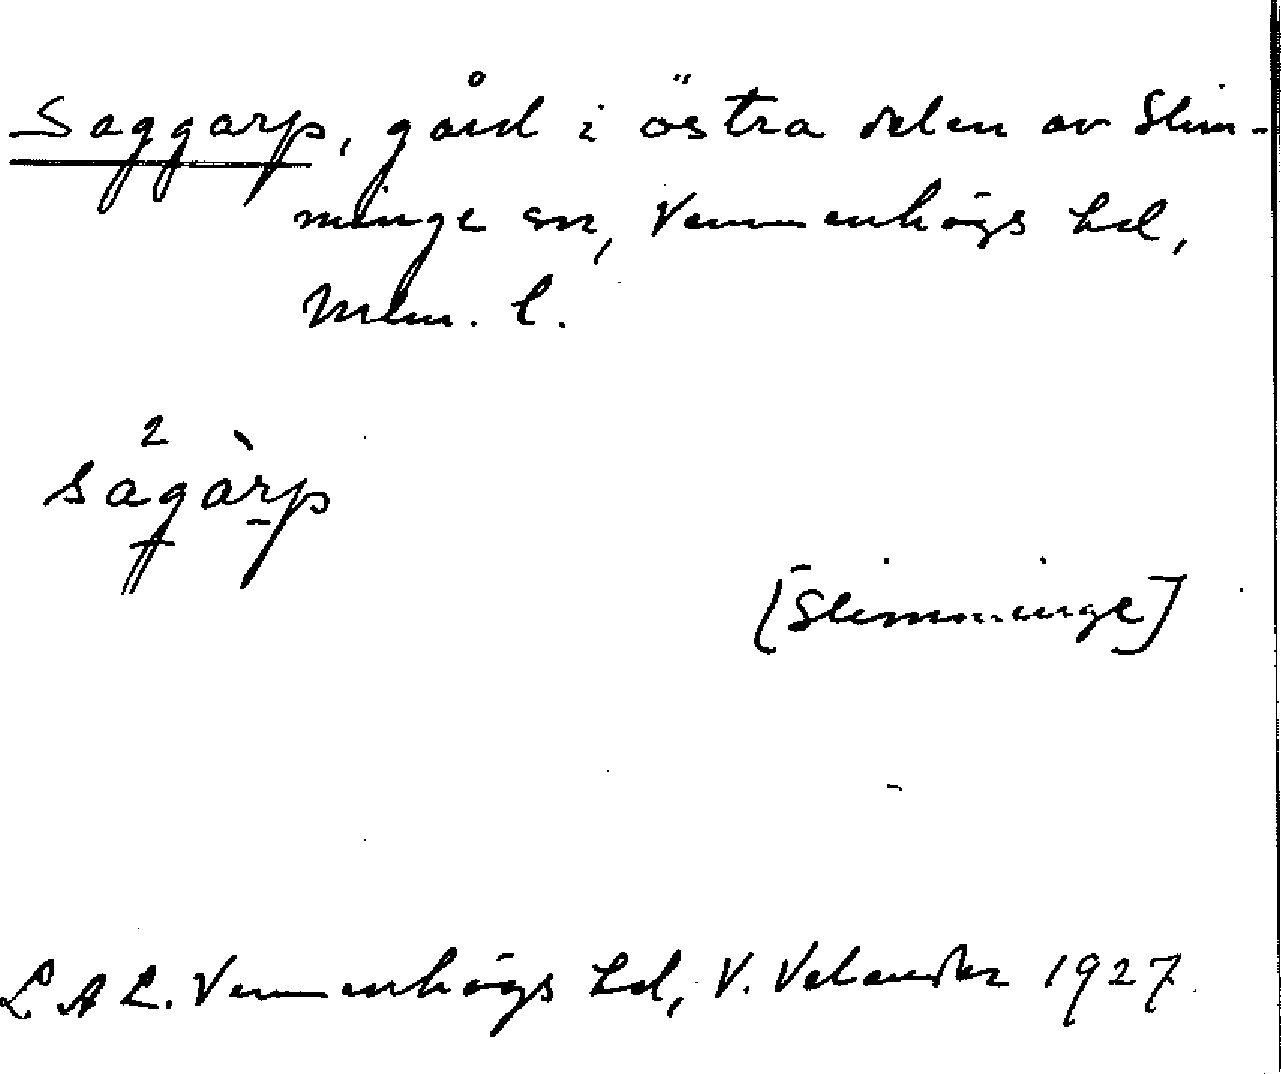 Saggarp, gård i östra delen av Slim-
minge sn, Vemmenhögs hd,
Mlm. l.
2 sagàrp
[Slimminge]
LAL. Vemmenhögs hd, V. Velander 1927